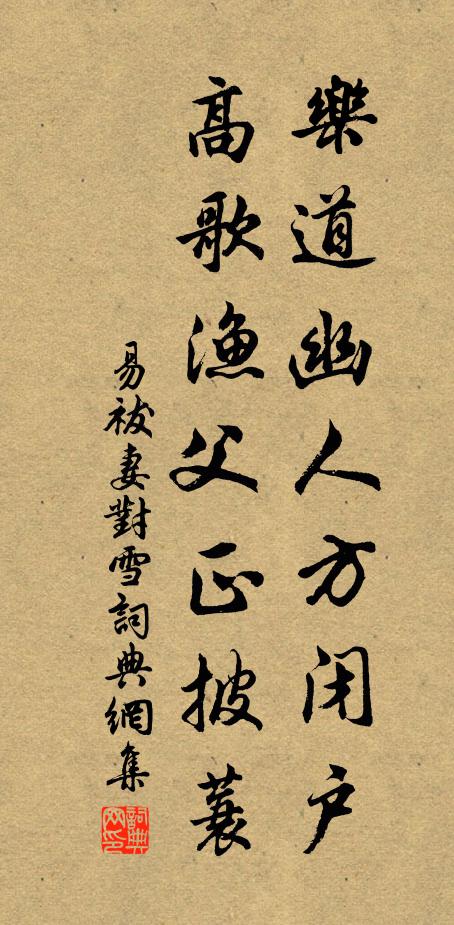 樂道幽人方闭户
高歌漁父正披蓑
易袚妻對雪詞典網集
詞典网印